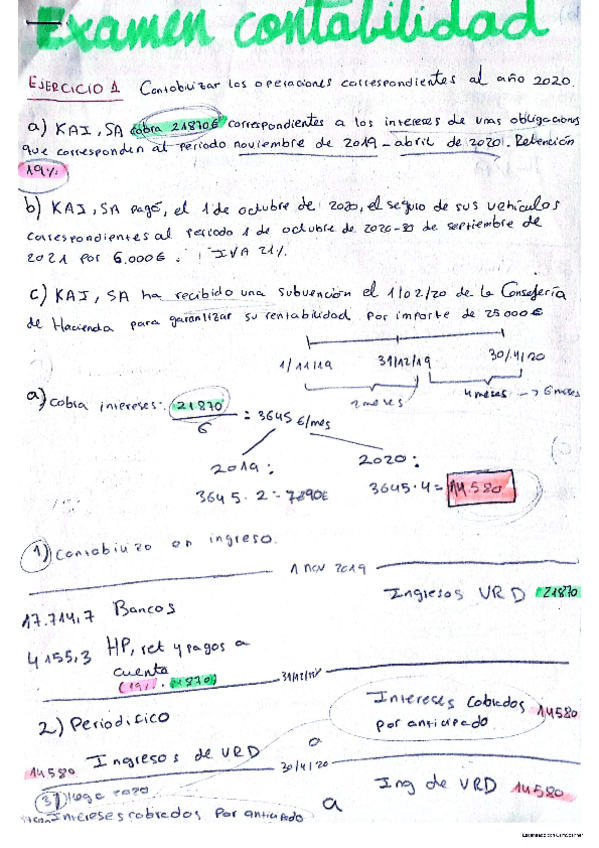 Examen contabilidad
EJERCICIO 1 Contabilizar las operaciones correspondientes al año 2020.
a) KAI, SA cobra 21870€ correspondientes a los intereses de unas obligaciones
que corresponden al periodo noviembre de 2019 - abril de 2020. Retención
19%
b) KAI, SA pagó, el 1 de octubre de 2020, el seguro de sus vehículos
correspondientes al periodo 1 de octubre de 2020-30 de septiembre de
2021 por 6.000€. IVA 21%.
c) KAI, SA ha recibido una subvención el 1/02/20 de la Consejería
de Hacienda para garantizar su rentabilidad por importe de 25000€
1/11/19 31/12/19 30/4/20
2 meses 4 meses -> 6 meses
a) cobra intereses: 21870 / 6 = 3645 €/mes
2019: 2020:
3645 · 2 = 7290€ 3645 · 4 = 14.580
1) Contabilizo en ingreso.
1 nov 2019
17.714,7 Bancos Ingresos VRD 21870
4155,3 HP, ret y pagos a
cuenta
(19% · 21870)
31/12/19
2) Periodifico Intereses cobrados 14580
por anticipado
14580 Ingresos de VRD a
30/4/20
3) Llega 2020 Ing de VRD 14580
14580 Intereses cobrados por anticipado a